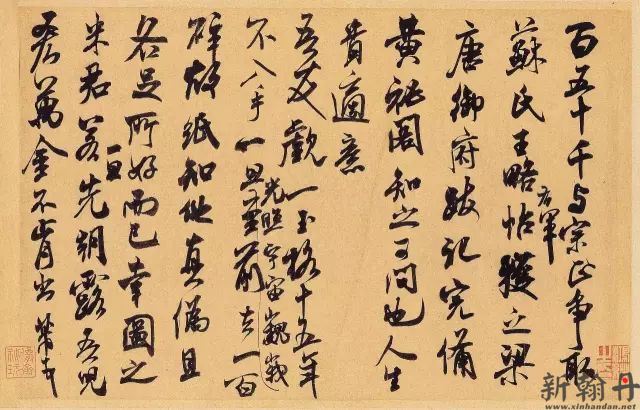 百五十千与宗正争取
蘇氏王略帖右軍獲之梁
唐御府跋記完備
黄秘閣知之可問也人生
貴適意
吾友覷一玉格十五年
不入手一旦光照宇宙巍峩至前去一百
碎故紙知他真偽且
各足所好而已幸圖之
米君若一旦先朝露吾兒
吝萬金不肯出芾
新翰丹
www.xinhandan.net